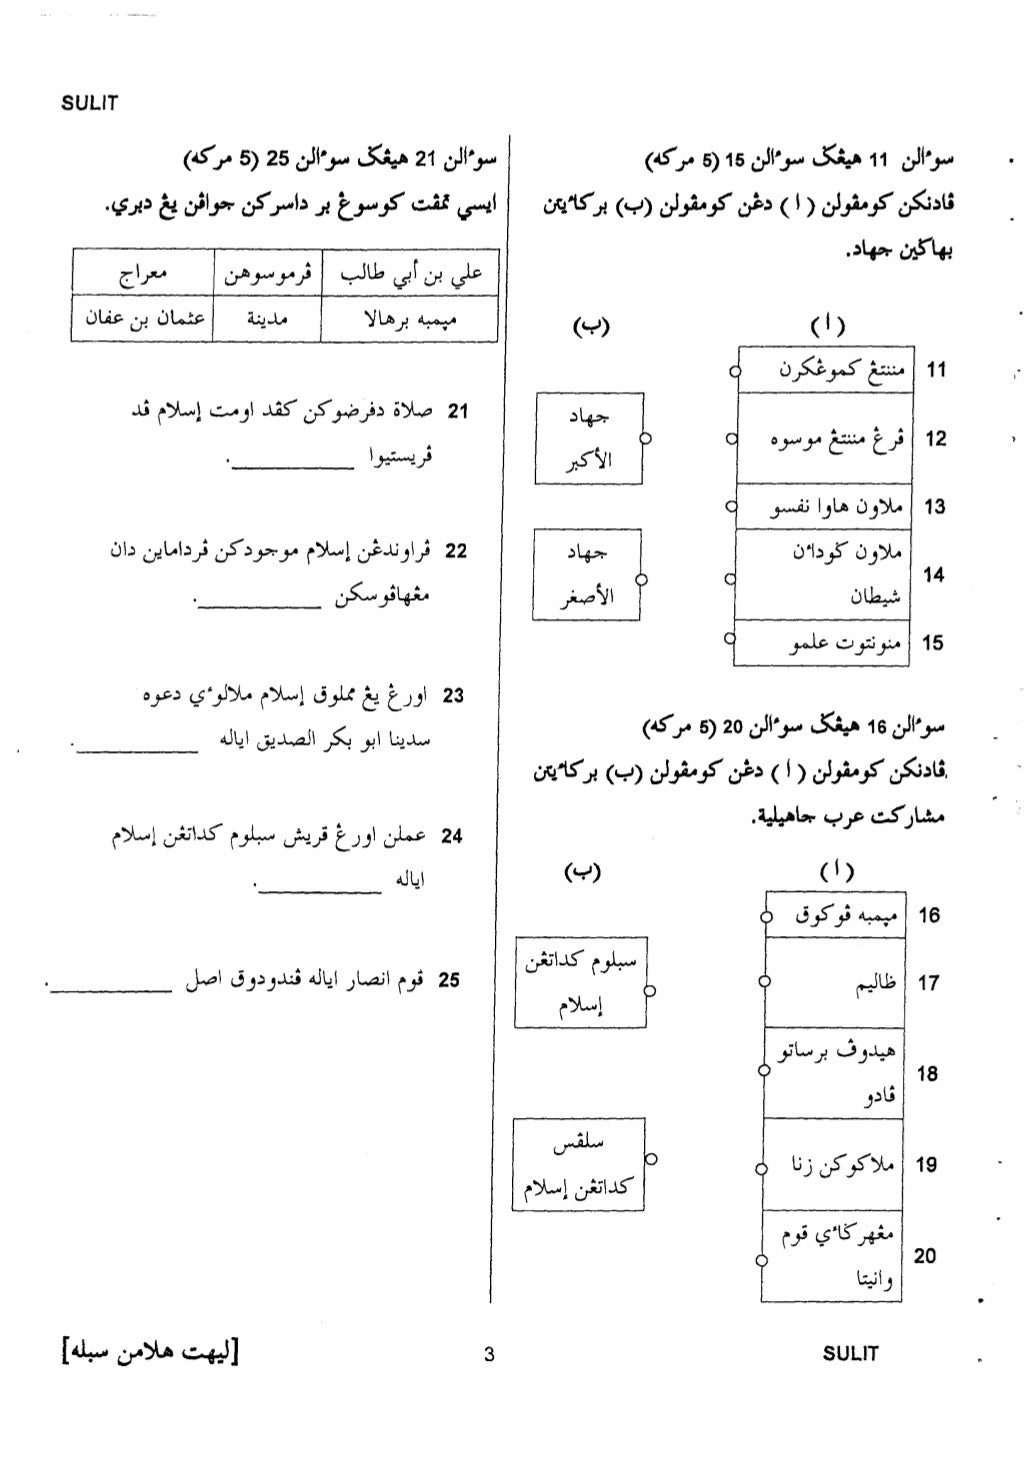 SULIT
سوءالن 11 هيڠݢ سوءالن 15 (5 مركه)
ڤادنكن كومڤولن ( أ ) دڠن كومڤولن (ب) بركاءيتن
بهاݢين جهاد.
( أ ) (ب)
11 مننتڠ كموڠكرن
12 ڤرڠ مننتڠ موسوه
13 ملاون هاوا نفسو
14 ملاون ݢوداءن
شيطان
15 منونتوت علمو
جهاد
الأكبر
جهاد
الأصغر
سوءالن 16 هيڠݢ سوءالن 20 (5 مركه)
ڤادنكن كومڤولن ( أ ) دڠن كومڤولن (ب) بركاءيتن
مشاركت عرب جاهيلية.
( أ ) (ب)
16 ميمبه ڤوكوق
17 ظاليم
18 هيدوڤ برساتو
ڤادو
19 ملاكوكن زنا
20 مڠهرݢاءي قوم
وانيتا
سبلوم كداتڠن
إسلام
سلڤس
كداتڠن إسلام
سوءالن 21 هيڠݢ سوءالن 25 (5 مركه)
ايسي تمڤت كوسوڠ بر داسركن جواڤن يڠ دبري.
علي بن أبي طالب ڤرموسوهن معراج
ميمبه برهالا مدينة عثمان بن عفان
21 صلاة دفرضوكن كڤد اومت إسلام ڤد
ڤريستيوا ____________.
22 ڤراوندڠن إسلام موجودكن ڤرداماين دان
مڠهاڤوسكن ____________.
23 اورڠ يڠ مملوق إسلام ملالوءي دعوه
سدينا ابو بكر الصديق اياله ____________.
24 عملن اورڠ قريش سبلوم كداتڠن إسلام
اياله ____________.
25 قوم انصار اياله ڤندودوق اصل ____________.
SULIT
3
[ليهت هلامن سبله]